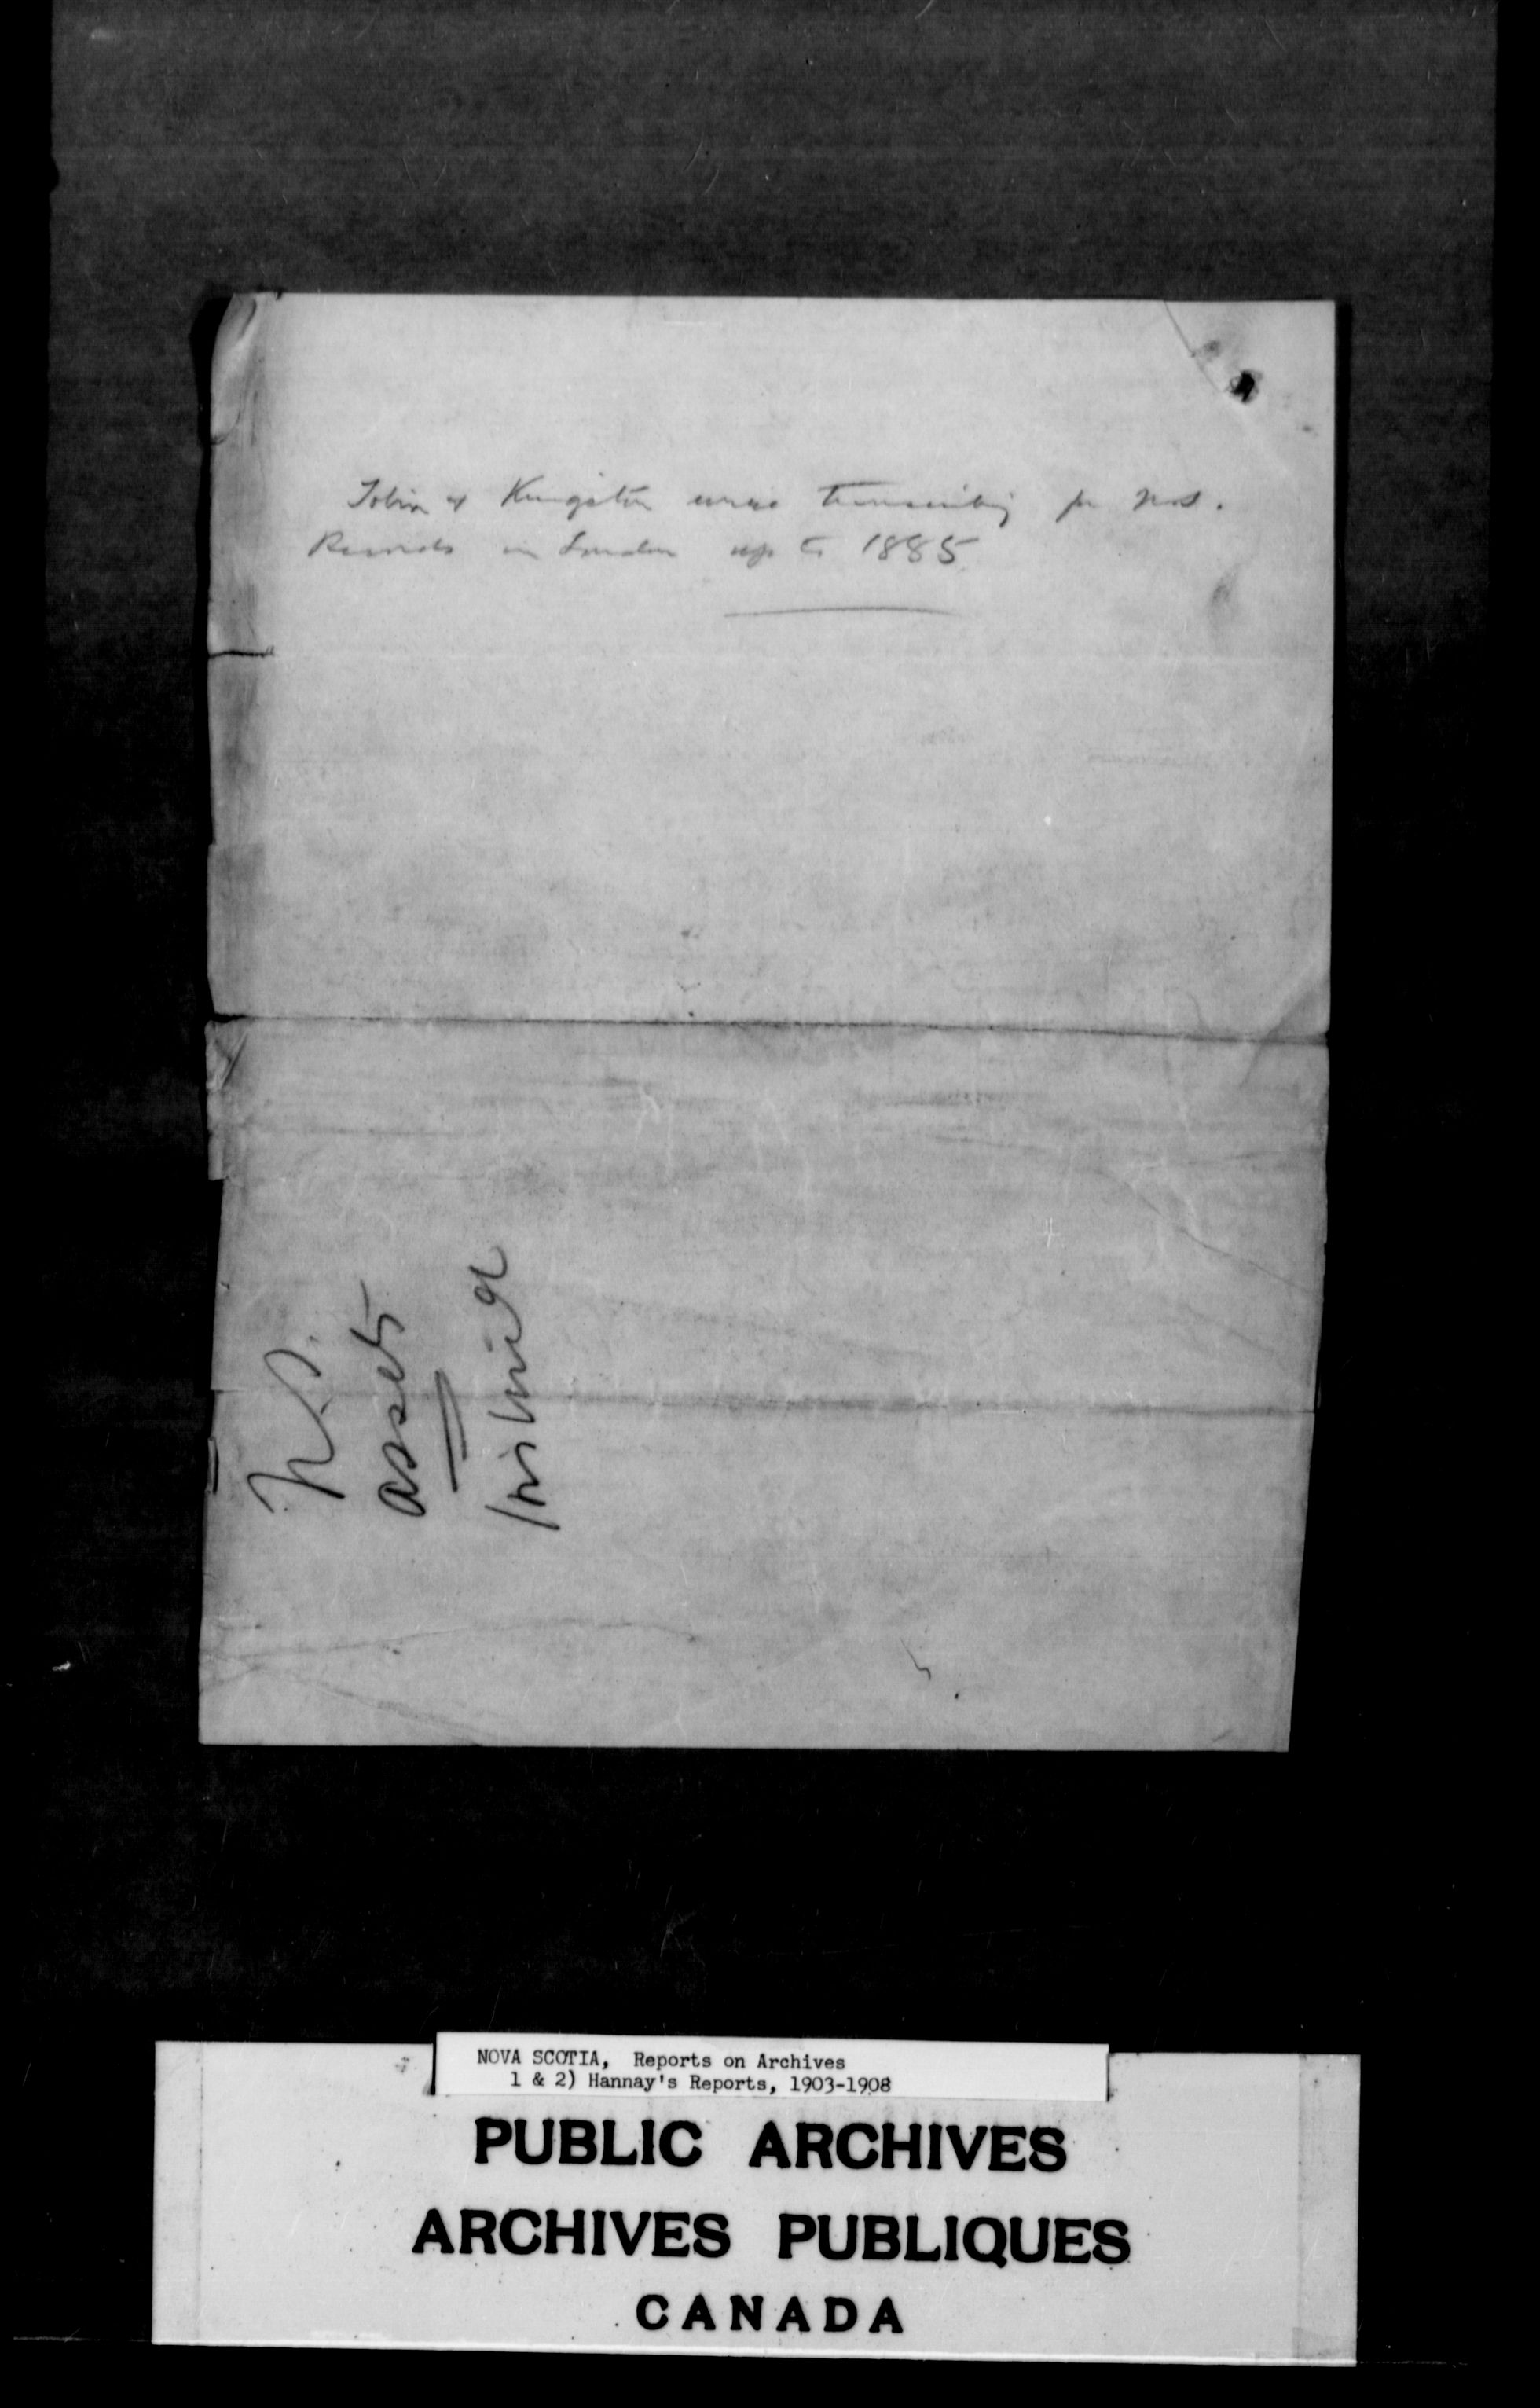 Tobin & Kingston were transcribing for N.S.
Records in London up to 1885
N.S.
assets
NOVA SCOTIA, Reports on Archives
1 & 2) Hannay's Reports, 1903-1908
PUBLIC ARCHIVES
ARCHIVES PUBLIQUES
CANADA